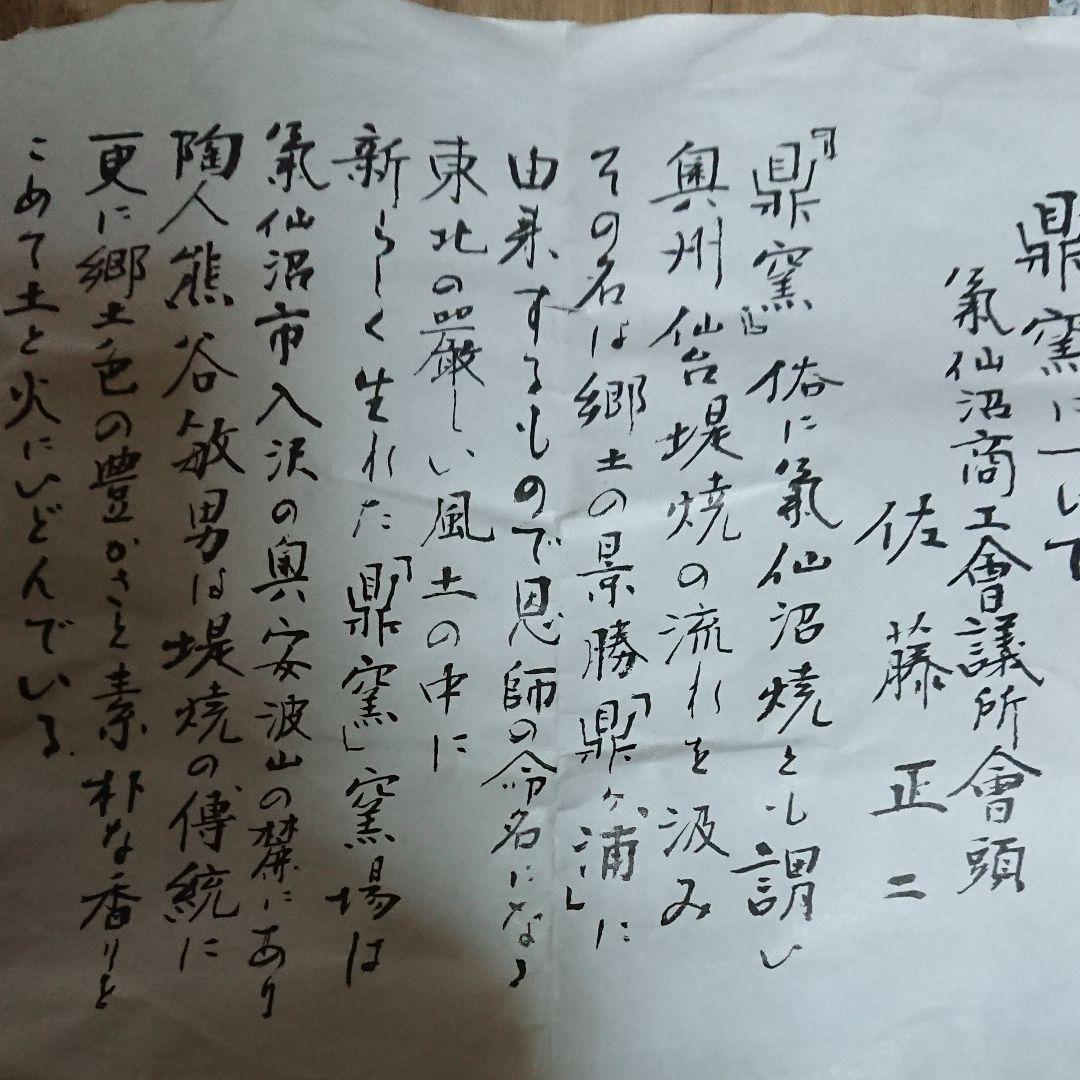 鼎窯について
氣仙沼商工會議所會頭
佐藤正二
『鼎窯』俗に氣仙沼焼とも謂い
奥州仙台堤焼の流れを汲み
その名は郷土の景勝「鼎ヶ浦」に
由来するもので恩師の命名になる
東北の厳しい風土の中に
新らしく生れた「鼎窯」窯場は
氣仙沼市入沢の奥安波山の麓にあり
陶人熊谷敏男は堤焼の傳統に
更に郷土色の豊かさと素朴な香りを
こめて土と火にいどんでいる.